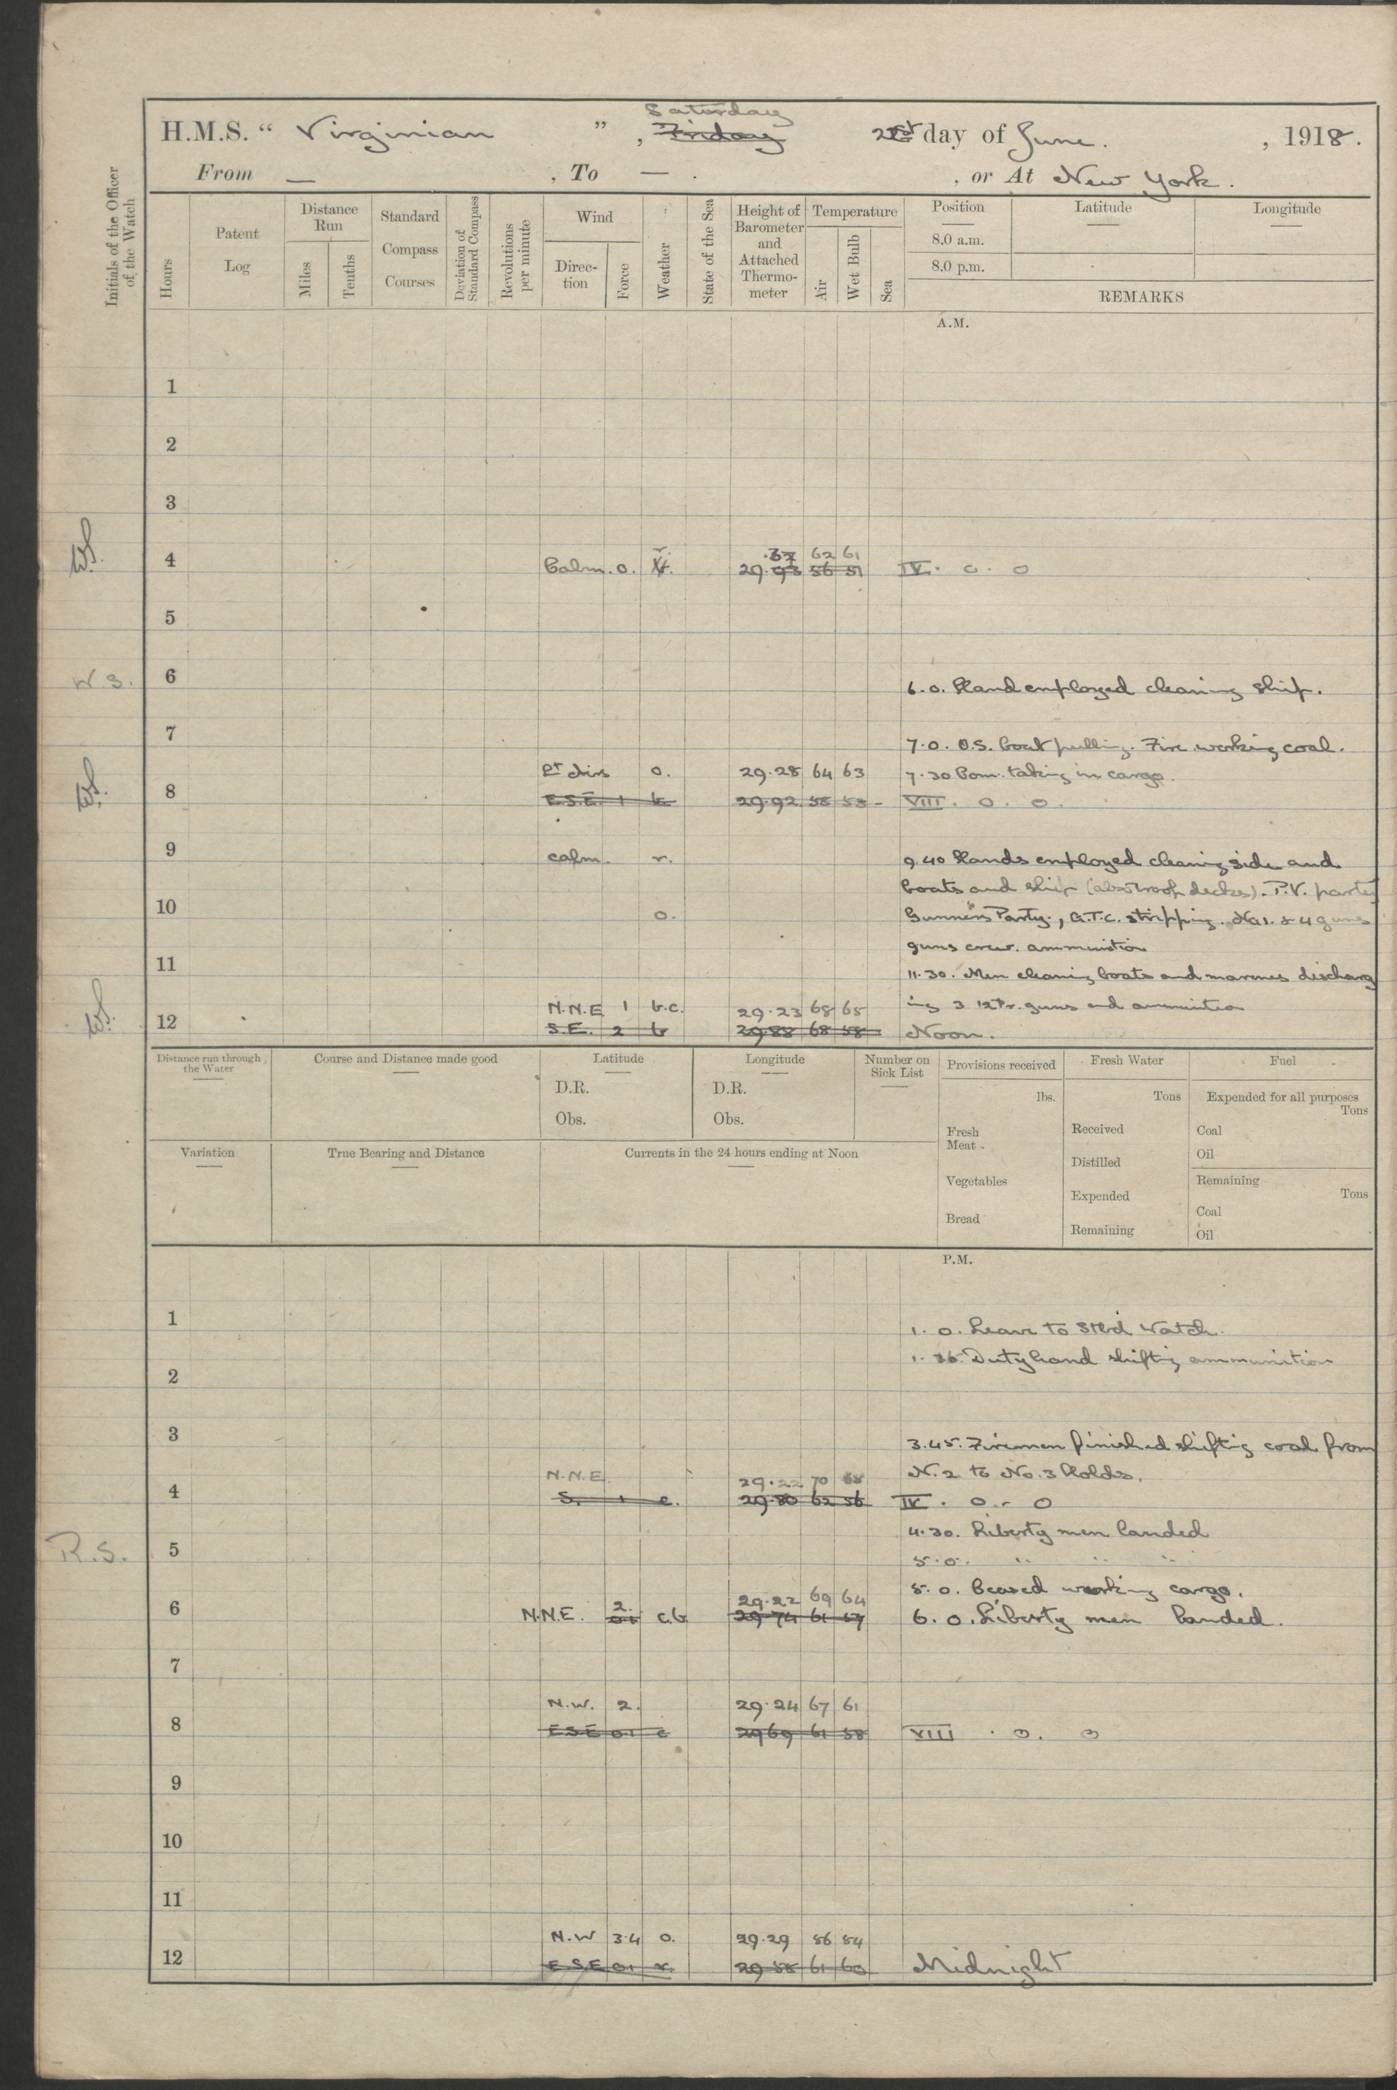 Saturday
H.M.S. " Virginian " , Friday day of June. , 1918.
From — , To — . , or At New York.
Initials of the Officer of the Watch
Hours
Patent Log
Distance Run
Miles
Tenths
Standard Compass Courses
Deviation of Standard Compass
Revolutions per minute
Wind
Direc-tion
Force
Weather
State of the Sea
Height of Barometer and Attached Thermo-meter
Temperature
Air
Wet Bulb
Sea
Position
8.0 a.m.
8.0 p.m.
Latitude
Longitude
REMARKS
A.M.
1
2
3
62 61
W.S. 4 Calm. 0. 29. 93 56 51 IV. 0. 0
5
W.S. 6
6.0. Hand employed cleaning ship.
7
7.0. O.S. boat pulling. Fire working coal.
Lt airs 0. 29.28 64 63 7.30 Com. taking in cargo.
W.S. 8 E.S.E. 1 29.92 58 53 - VIII. 0. 0.
9
calm. r. 9.40 Hands employed cleaning side and
boats and ship (also troop decks). P.V. party
10 o. Gunner's Party., G.T.C. stripping. No 1. & 4 guns
guns crew. ammunition
11
11.30. Men cleaning boats and marines discharg
N.N.E 1 b.c. 29.23 68 65 ing 3 12Pr. guns and ammunition
W.S. 12 S.E. 2 b 29.88 68 58 Noon.
Distance run through the Water
Course and Distance made good
Latitude
D.R.
Obs.
Longitude
D.R.
Obs.
Number on Sick List
Provisions received
lbs.
Fresh Meat
Vegetables
Bread
Fresh Water
Tons
Received
Distilled
Expended
Remaining
Fuel
Expended for all purposes
Tons
Coal
Oil
Remaining
Tons
Coal
Oil
Variation
True Bearing and Distance
Currents in the 24 hours ending at Noon
P.M.
1
1. 0. Leave to Stbd Watch.
1. Duty hand shifting ammunition
2
3
3.45. Firemen finished shifting coal from
N.N.E. 29.22 70 68 N. 2 to No. 3 Holds.
4 S. 1 c. 29.80 62 56 IV. 0. 0
4.30. Liberty men landed
R.S. 5
5.0. " " "
2. 29.22 69 64 5. 0. Ceased working cargo.
6 N.N.E. 0.1 c.b 29 74 61 57 6. 0. Liberty men landed.
7
N.W. 2. 29.24 67 61
8 E S E 0.1 c 29 69 61 58 VIII . 0. 0
9
10
11
N.W 3.4 o. 29.29 56 54
12 E S E 0.1 r. 29 58 61 60 Midnight